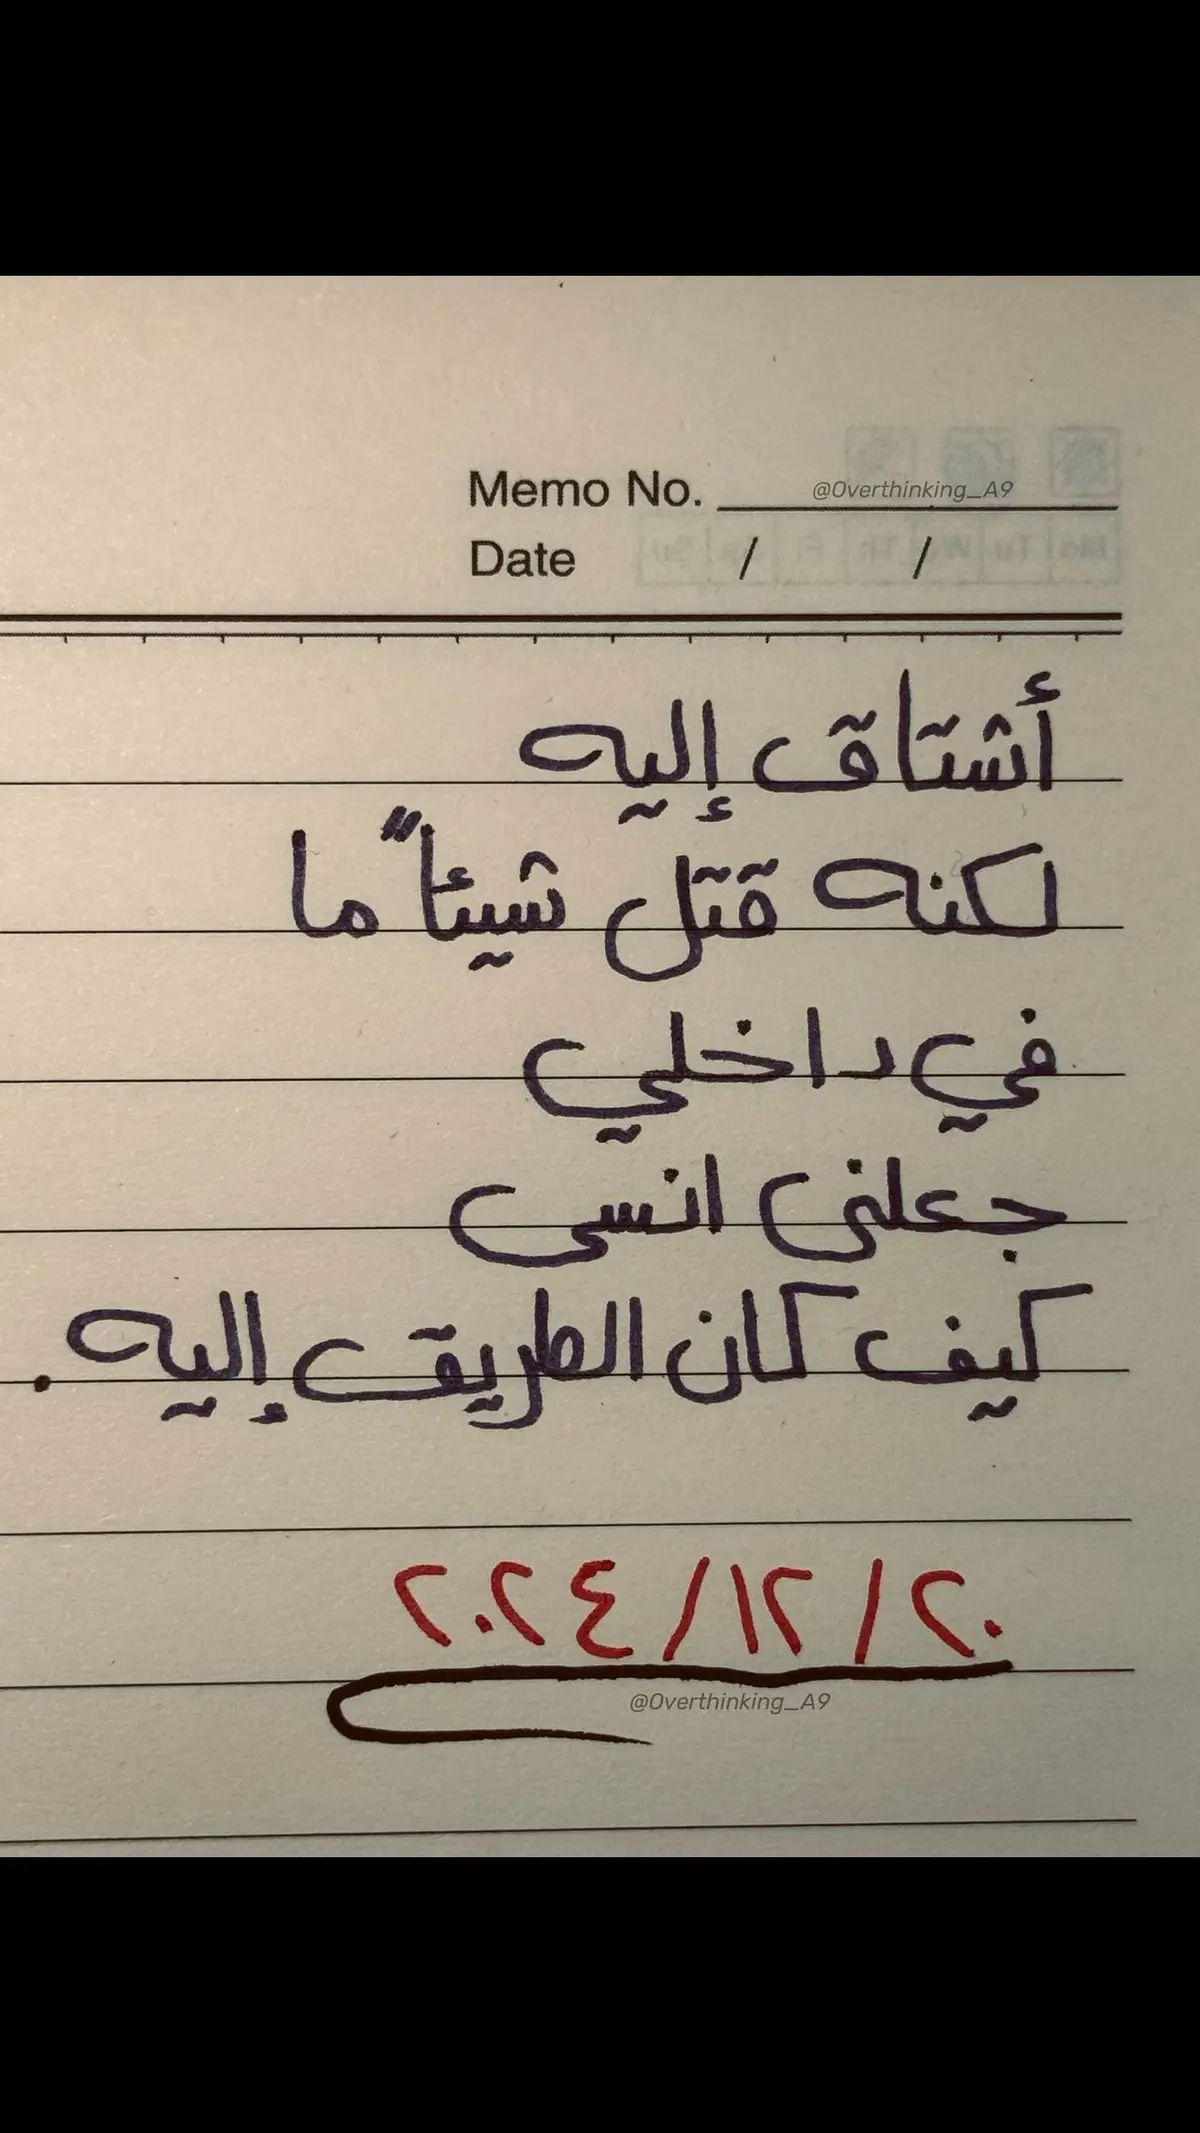 Memo No. @Overthinking_A9
Date / /
أشتاق إليه
لكنه قتل شيئاً ما
في داخلي
جعلني انسى
كيف كان الطريق إليه .
٢٠ / ١٢ / ٢٠٢٤
@Overthinking_A9